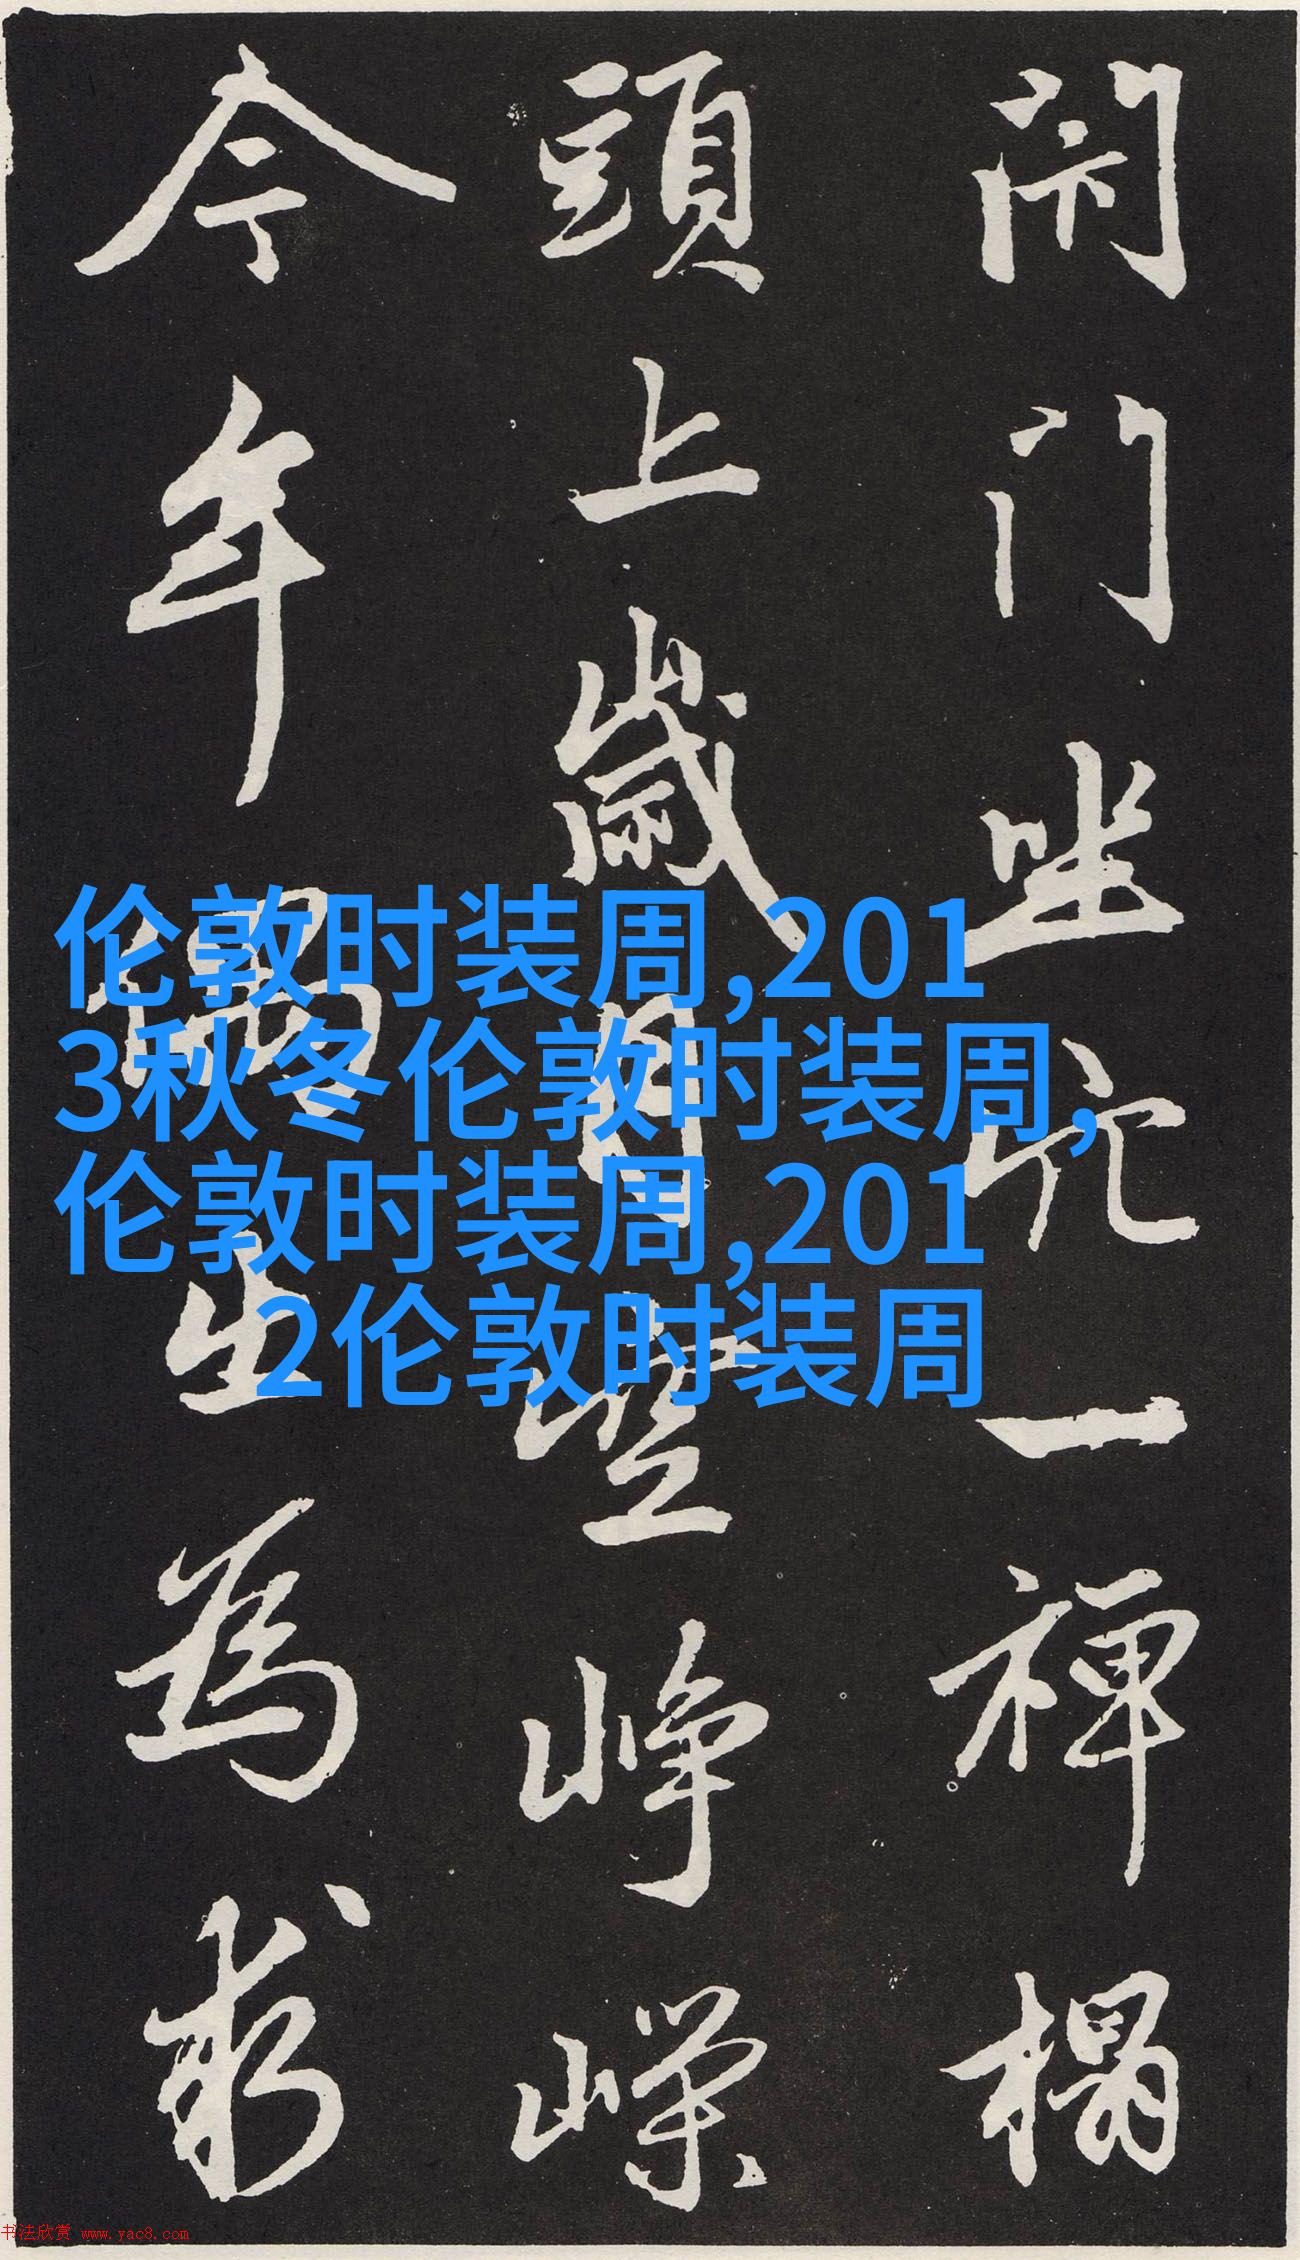 闹门坐穴一禅榻
頭上歲月空峥嵘
今年偶生為求
伦敦时装周,201
3秋冬伦敦时装周,
伦敦时装周,201
2伦敦时装周
书法欣赏 www.yac8.com